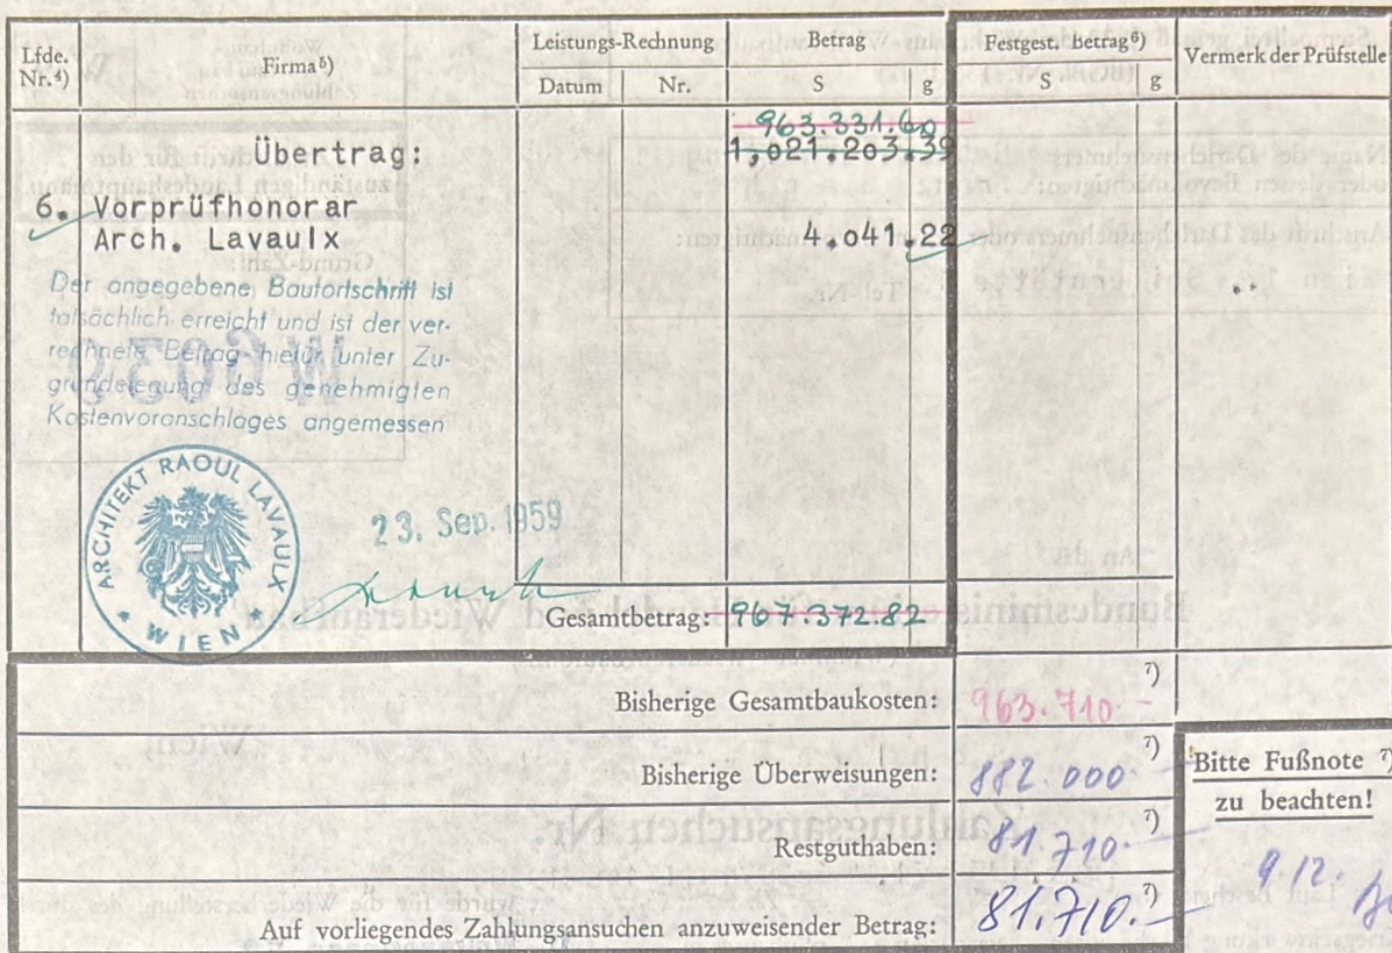 Lfde. Nr.⁴)
Firma⁵)
Leistungs-Rechnung
Datum
Nr.
Betrag
S
g
Festgest. Betrag⁶)
S
g
Vermerk der Prüfstelle
963.331.60
Übertrag: 1,021.203.39
6. Vorprüfhonorar
Arch. Lavaulx 4,041.22
Der angegebene Baufortschritt ist
tatsächlich erreicht und ist der ver-
rechnete Betrag hiefür unter Zu-
grundelegung des genehmigten
Kostenvoranschlages angemessen
ARCHITEKT RAOUL LAVAULX
* WIEN *
23. Sep. 1959
Gesamtbetrag: 967.372.82
Bisherige Gesamtbaukosten: 963.710.- ⁷)
Bisherige Überweisungen: 882.000.- ⁷)
Restguthaben: 81.710.- ⁷)
Auf vorliegendes Zahlungsansuchen anzuweisender Betrag: 81.710.- ⁷)
Bitte Fußnote ⁷)
zu beachten!
9.12.